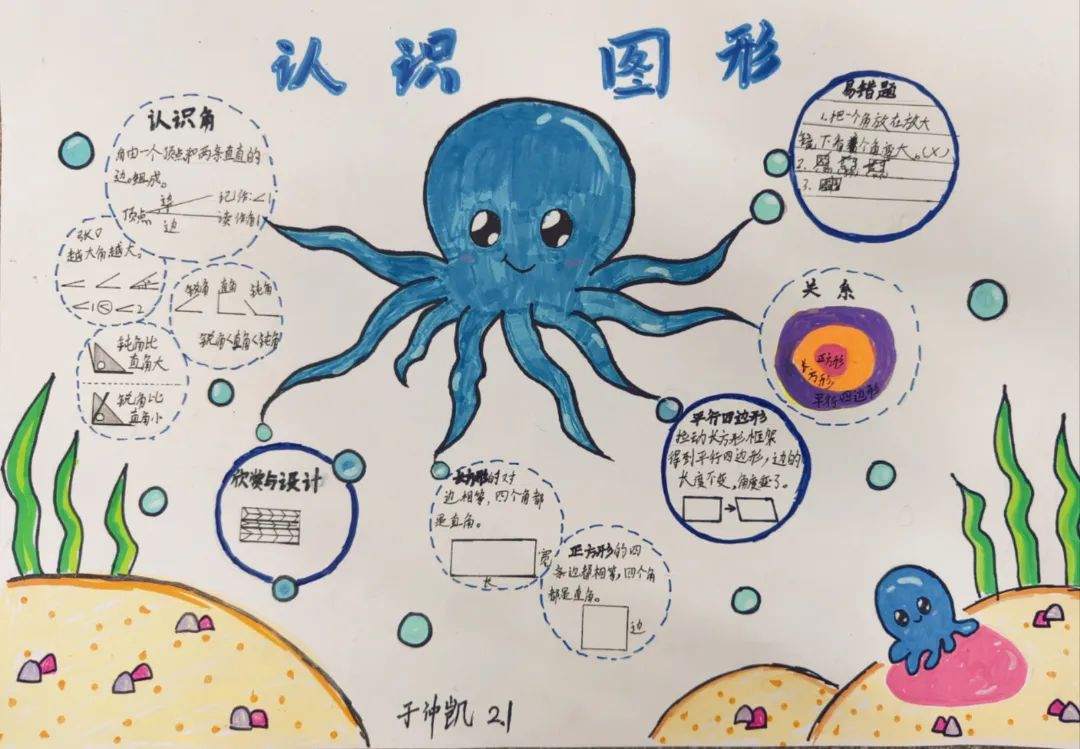 认识图形
认识角
角由一个顶点和两条直直的
边组成。
边
顶点
边
记作:∠1
读作:角1
张口
越大角越大。
∠1<∠2
锐角 直角 钝角
锐角<直角<钝角
钝角比
直角大
锐角比
直角小
欣赏与设计
长方形的对
边相等,四个角都
是直角。
宽
长
正方形的四
条边都相等,四个角
都是直角。
边
平行四边形
拉动长方形框架
得到平行四边形,边的
长度不变,角度变了。
关系
正方形
长方形
平行四边形
易错题
1.把一个角放在放大
镜下看这个角变大。(×)
2.
3.
于仲凯 21